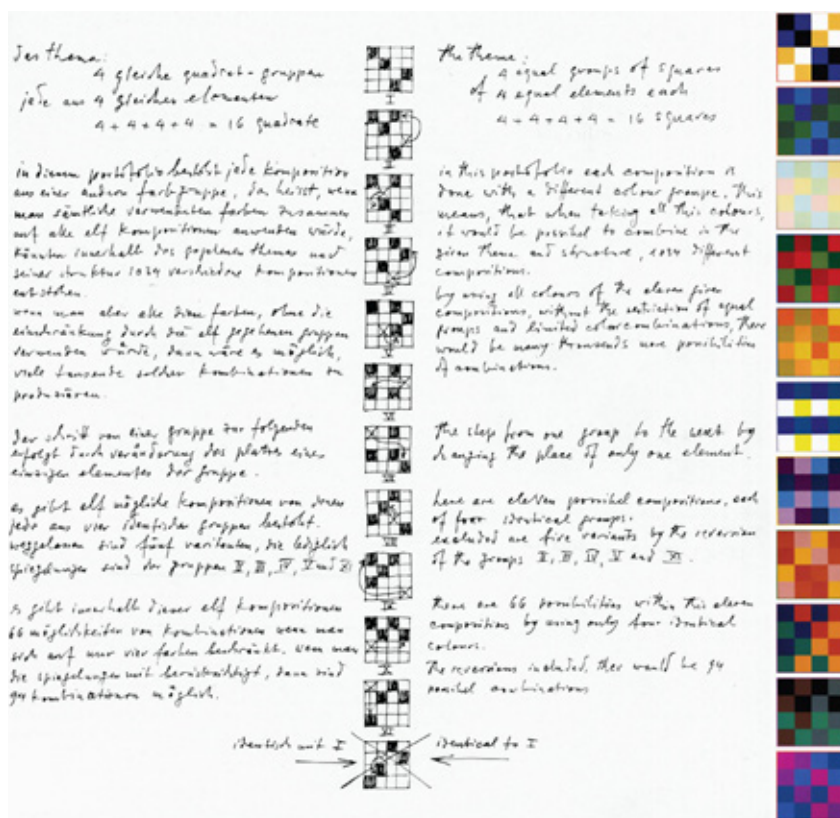 das thema:
4 gleiche quadrat-gruppen
jede aus 4 gleichen elementen
4 + 4 + 4 + 4 = 16 quadrate
in diesem portofolio besteht jede komposition
aus einer andren farbgruppe, das heisst, wenn
man sämtliche verwendeten farben zusammen
auf alle elf kompositionen anwenden würde,
könnten innerhalb des gegebenen themas und
seiner struktur 1024 verschiedene kompositionen
entstehen.
wenn man aber alle diese farben, ohne die
einschränkung durch die elf gegebenen gruppen
verwenden würde, dann wäre es möglich,
viele tausende solcher kombinationen zu
produzieren.
der schritt von einer gruppe zur folgenden
erfolgt durch veränderung des platzes eines
einzigen elementes der gruppe.
es gibt elf mögliche kompositionen von denen
jede aus vier identischen gruppen besteht.
weggelassen sind fünf varianten, die lediglich
spiegelungen sind der gruppen II, III, IV, V und XI
es gibt innerhalb dieser elf kompositionen
66 möglichkeiten von kombinationen wenn man
sich auf nur vier farben beschränkt. wenn man
die spiegelungen mit berücksichtigt, dann sind
94 kombinationen möglich.
I
VI
VIII
IX
X
XI
identisch mit I
the theme:
4 equal groups of squares
of 4 equal elements each
4 + 4 + 4 + 4 = 16 squares
in this portofolio each composition is
done with a different colour groupe. This
means, that when taking all this colours,
it would be possibel to combine in the
given theme and structure, 1024 different
compositions.
by using all colours of the eleven given
compositions, without the restriction of equal
groups and limited colorcombinations, there
would be many thowsends more possibilities
of combinations.
the step from one group to the next by
changing the place of only one element.
here are eleven possibel compositions, each
of four identical groups.
excluded are five variants by the reversion
of the groups II, III, IV, V and XI.
there are 66 possibilities within this eleven
compositions by using only four identical
colours.
The reversions included, ther would be 94
possibel combinations
identical to I